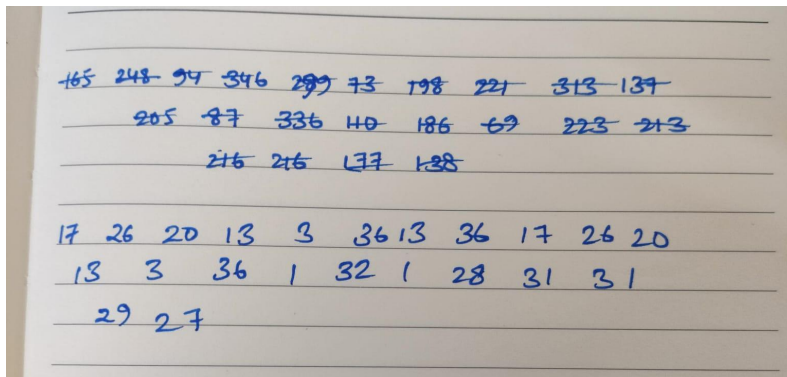 165 248 94 346 299 73 198 221 313 137
205 87 336 110 186 69 223 213
216 216 177 138
17 26 20 13 3 36 13 36 17 26 20
13 3 36 1 32 1 28 31 31
29 27